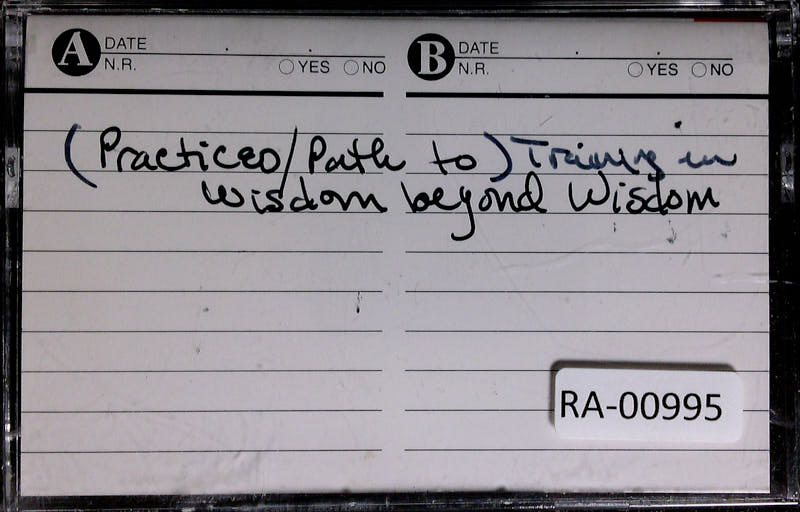 A DATE
N.R. YES NO
B DATE
N.R. YES NO
(Practices/Path to) Training in
Wisdom beyond Wisdom
RA-00995